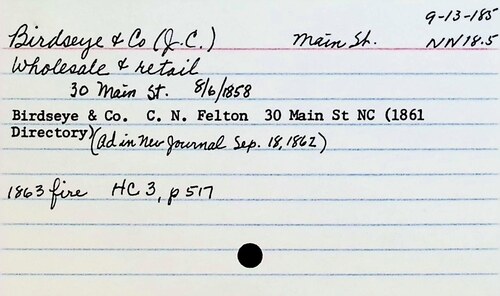 9-13-185
Birdseye & Co (J.C.) Main St. NN 18.5
Wholesale & retail
30 Main St. 8/6/1858
Birdseye & Co. C. N. Felton 30 Main St NC (1861
Directory) (Ad in Nev Journal Sep. 18, 1862)
1863 fire HC 3, p 517